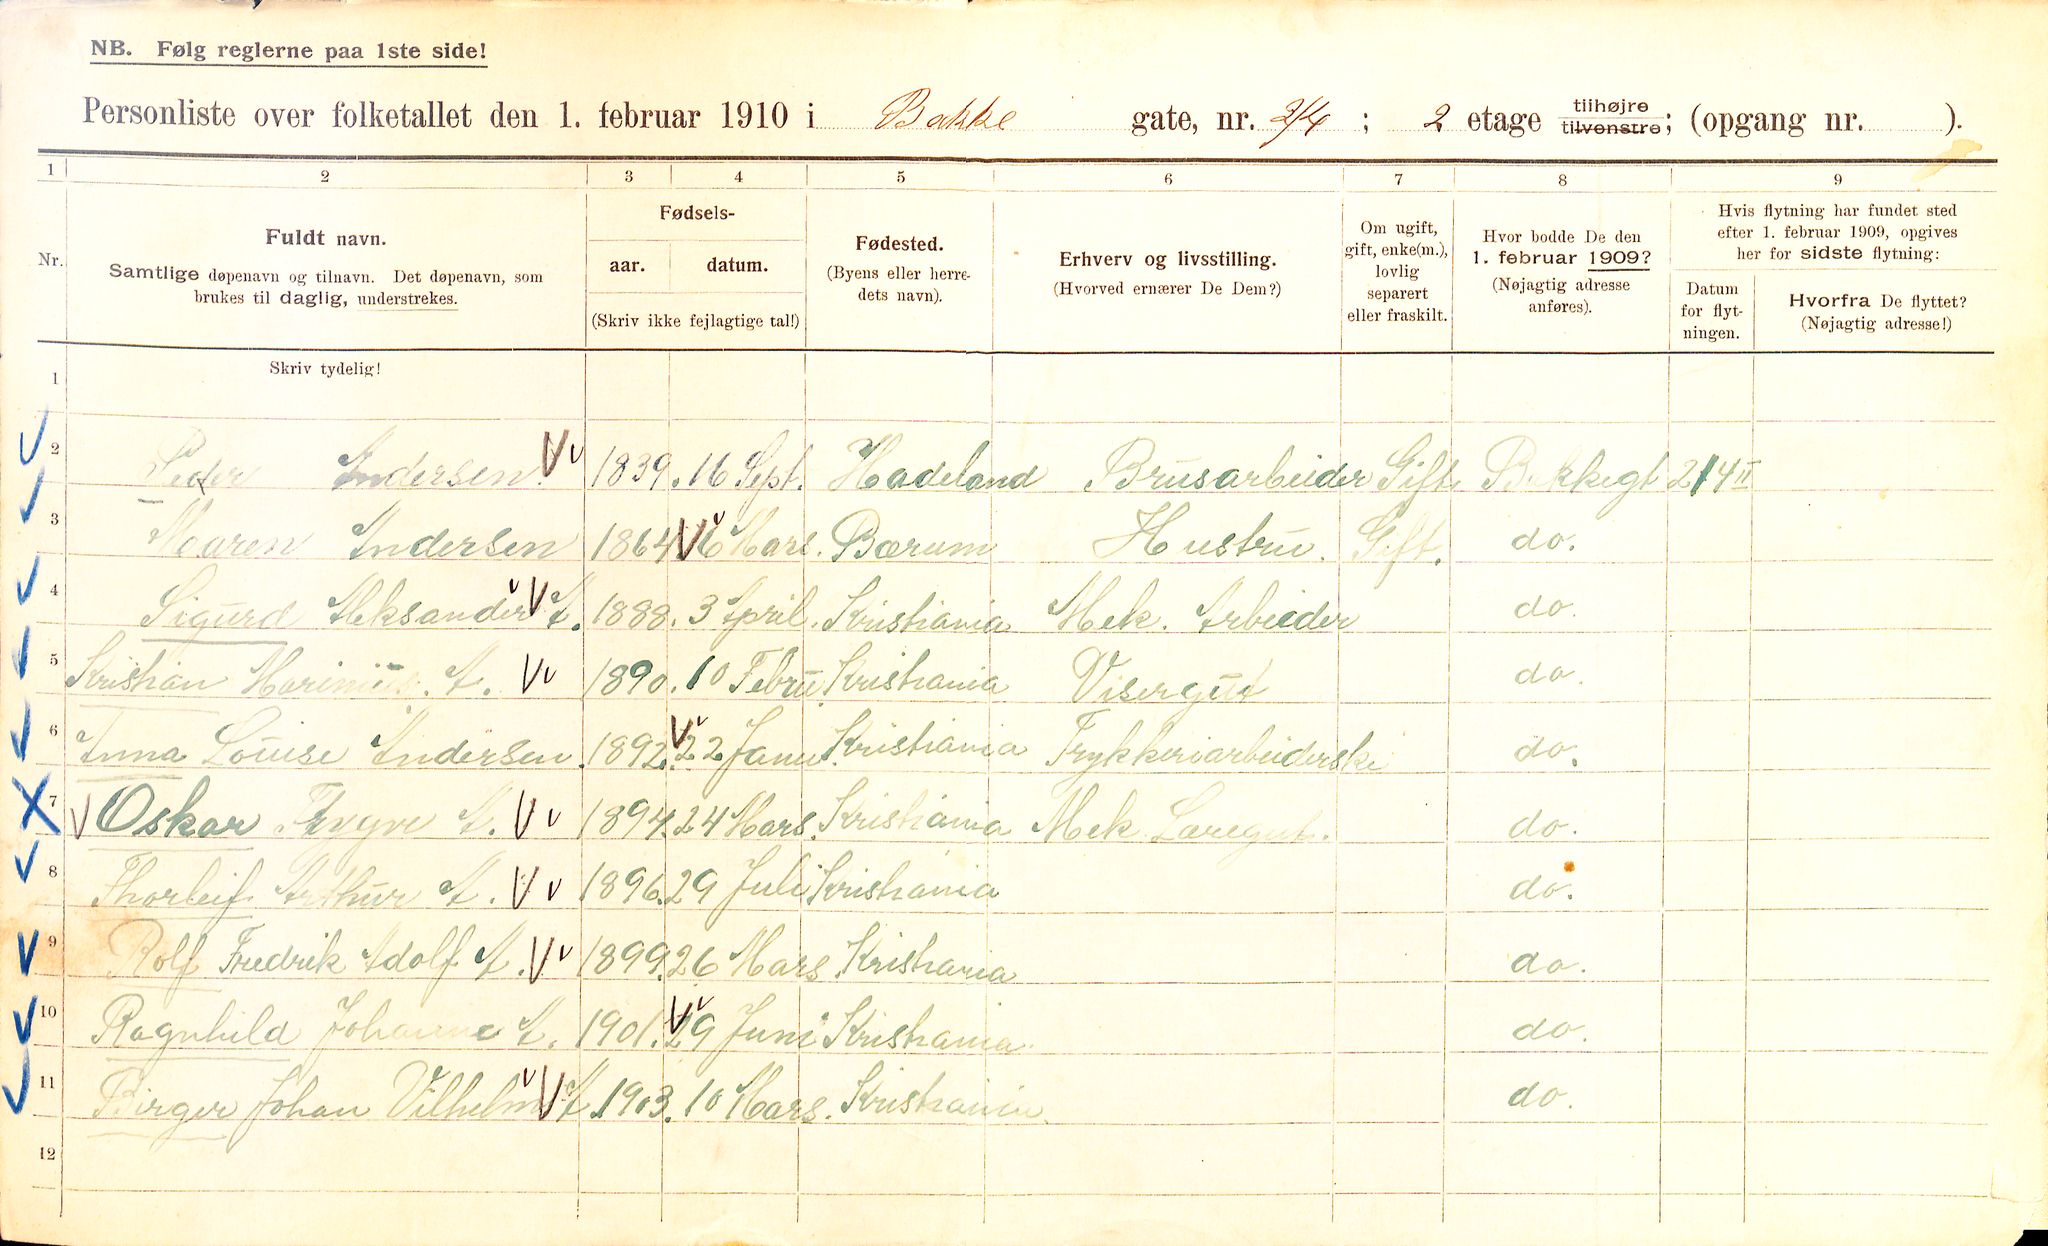 NB. Følg reglerne paa 1ste side!
Personliste over folketallet den 1. februar 1910 i Bakke gate, nr. 2/4 ; 2 etage tilhøjre tilvenstre; (opgang nr. ).
1 2 3 4 5 6 7 8 9
Nr.
Fuldt navn.
Samtlige døpenavn og tilnavn. Det døpenavn, som
brukes til daglig, understrekes.
Fødsels-
aar. datum.
(Skriv ikke fejlagtige tal!)
Fødested.
(Byens eller herre-
dets navn).
Erhverv og livsstilling.
(Hvorved ernærer De Dem?)
Om ugift,
gift, enke(m.),
lovlig
separert
eller fraskilt.
Hvor bodde De den
1. februar 1909?
(Nøjagtig adresse
anføres).
Hvis flytning har fundet sted
efter 1. februar 1909, opgives
her for sidste flytning:
Datum
for flyt-
ningen.
Hvorfra De flyttet?
(Nøjagtig adresse!)
Skriv tydelig!
1
2 Peder Andersen. 1839. 16 Sept. Hadeland Brusarbeider Gift. Bakkegt 2/4 II
3 Maren Andersen 1864 6 Mars. Bærum Hustru. Gift. do.
4 Sigurd Aleksander A. 1888. 3 April. Kristiania Mek. Arbeider do.
5 Kristian Marinius. A. 1890. 10 Febru. Kristiania Visergut do.
6 Anna Louise Andersen. 1892. 22 Janu. Kristiania Trykkeriarbeiderske do.
7 Oskar Trygve A. 1894. 24 Mars. Kristiania Mek Læregut. do.
8 Thorleif Arthur A. 1896. 29 Juli Kristiania do.
9 Rolf Fredrik Adolf A. 1899. 26 Mars Kristiania do.
10 Ragnhild Johanne A. 1901. 29 Juni Kristiania. do.
11 Birger Johan Vilhelm A. 1903. 10 Mars. Kristiania. do.
12